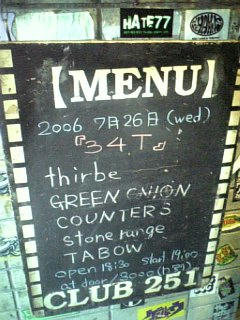 HATE77
【MENU】
2006 7月26日(wed)
『34T』
thirbe
GREEN ONION
COUNTERS
stone runge
TABOW
open 18:30 start 19:00
at door/3000
CLUB 251